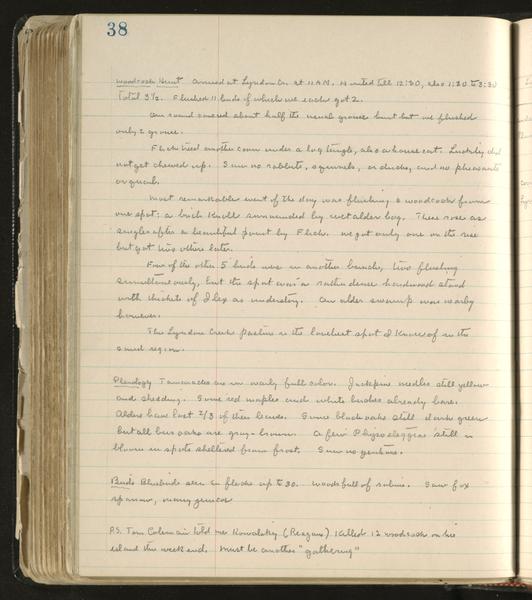 38
Woodcock Hunt Arrived at Lyndon Cr. at 11 AM. Hunted till 12:30, also 1:30 to 3:30
Total 3½. Flushed 11 birds of which we each got 2.
Our round covered about half the usual grouse hunt but we flushed
only 2 grouse.
Flick treed another coon under a log, also a house cat. Luckily did
not get chewed up. Saw no rabbits, squirrels, or ducks, and no pheasants
or quail.
Most remarkable event of the day was flushing 6 woodcock from
one spot: a birch knoll surrounded by wet alder bog. These rose as
singles after a beautiful point by Flick. We got only one on the rise
but got two others later.
Four of the other 5 birds were in another bunch, two flushing
simultaneously, but the spot was a rather dense hardwood stand
with thickets of Ilex as understory. An alder swamp was nearby
however.
The Lyndon Creek pasture is the loveliest spot I know of in the
sand region.
Phenology Tamaracks are in nearly full color. Jackpine needles still yellow
and shedding. Some red maples and white birches already bare.
Alders have lost 2/3 of their leaves. Some black oaks still dark green
but all bur oaks are gray-brown. A few Physostegia still in
bloom in spots sheltered from frost. Saw no gentians.
Birds Bluebirds seen in flocks up to 30. Woods full of robins. Saw fox
sparrow, many juncos
P.S. Tom Coleman told me Kowalsky (Reagans) killed 12 woodcock on his
island this weekend. Must be another "gathering"